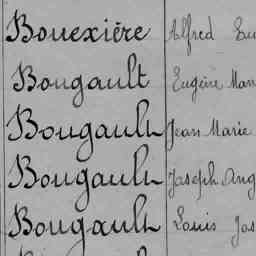 Bouexière Alfred
Bougault Eugène
Bougault Jean Marie
Bougault Joseph Ang
Bougault Louis Jos